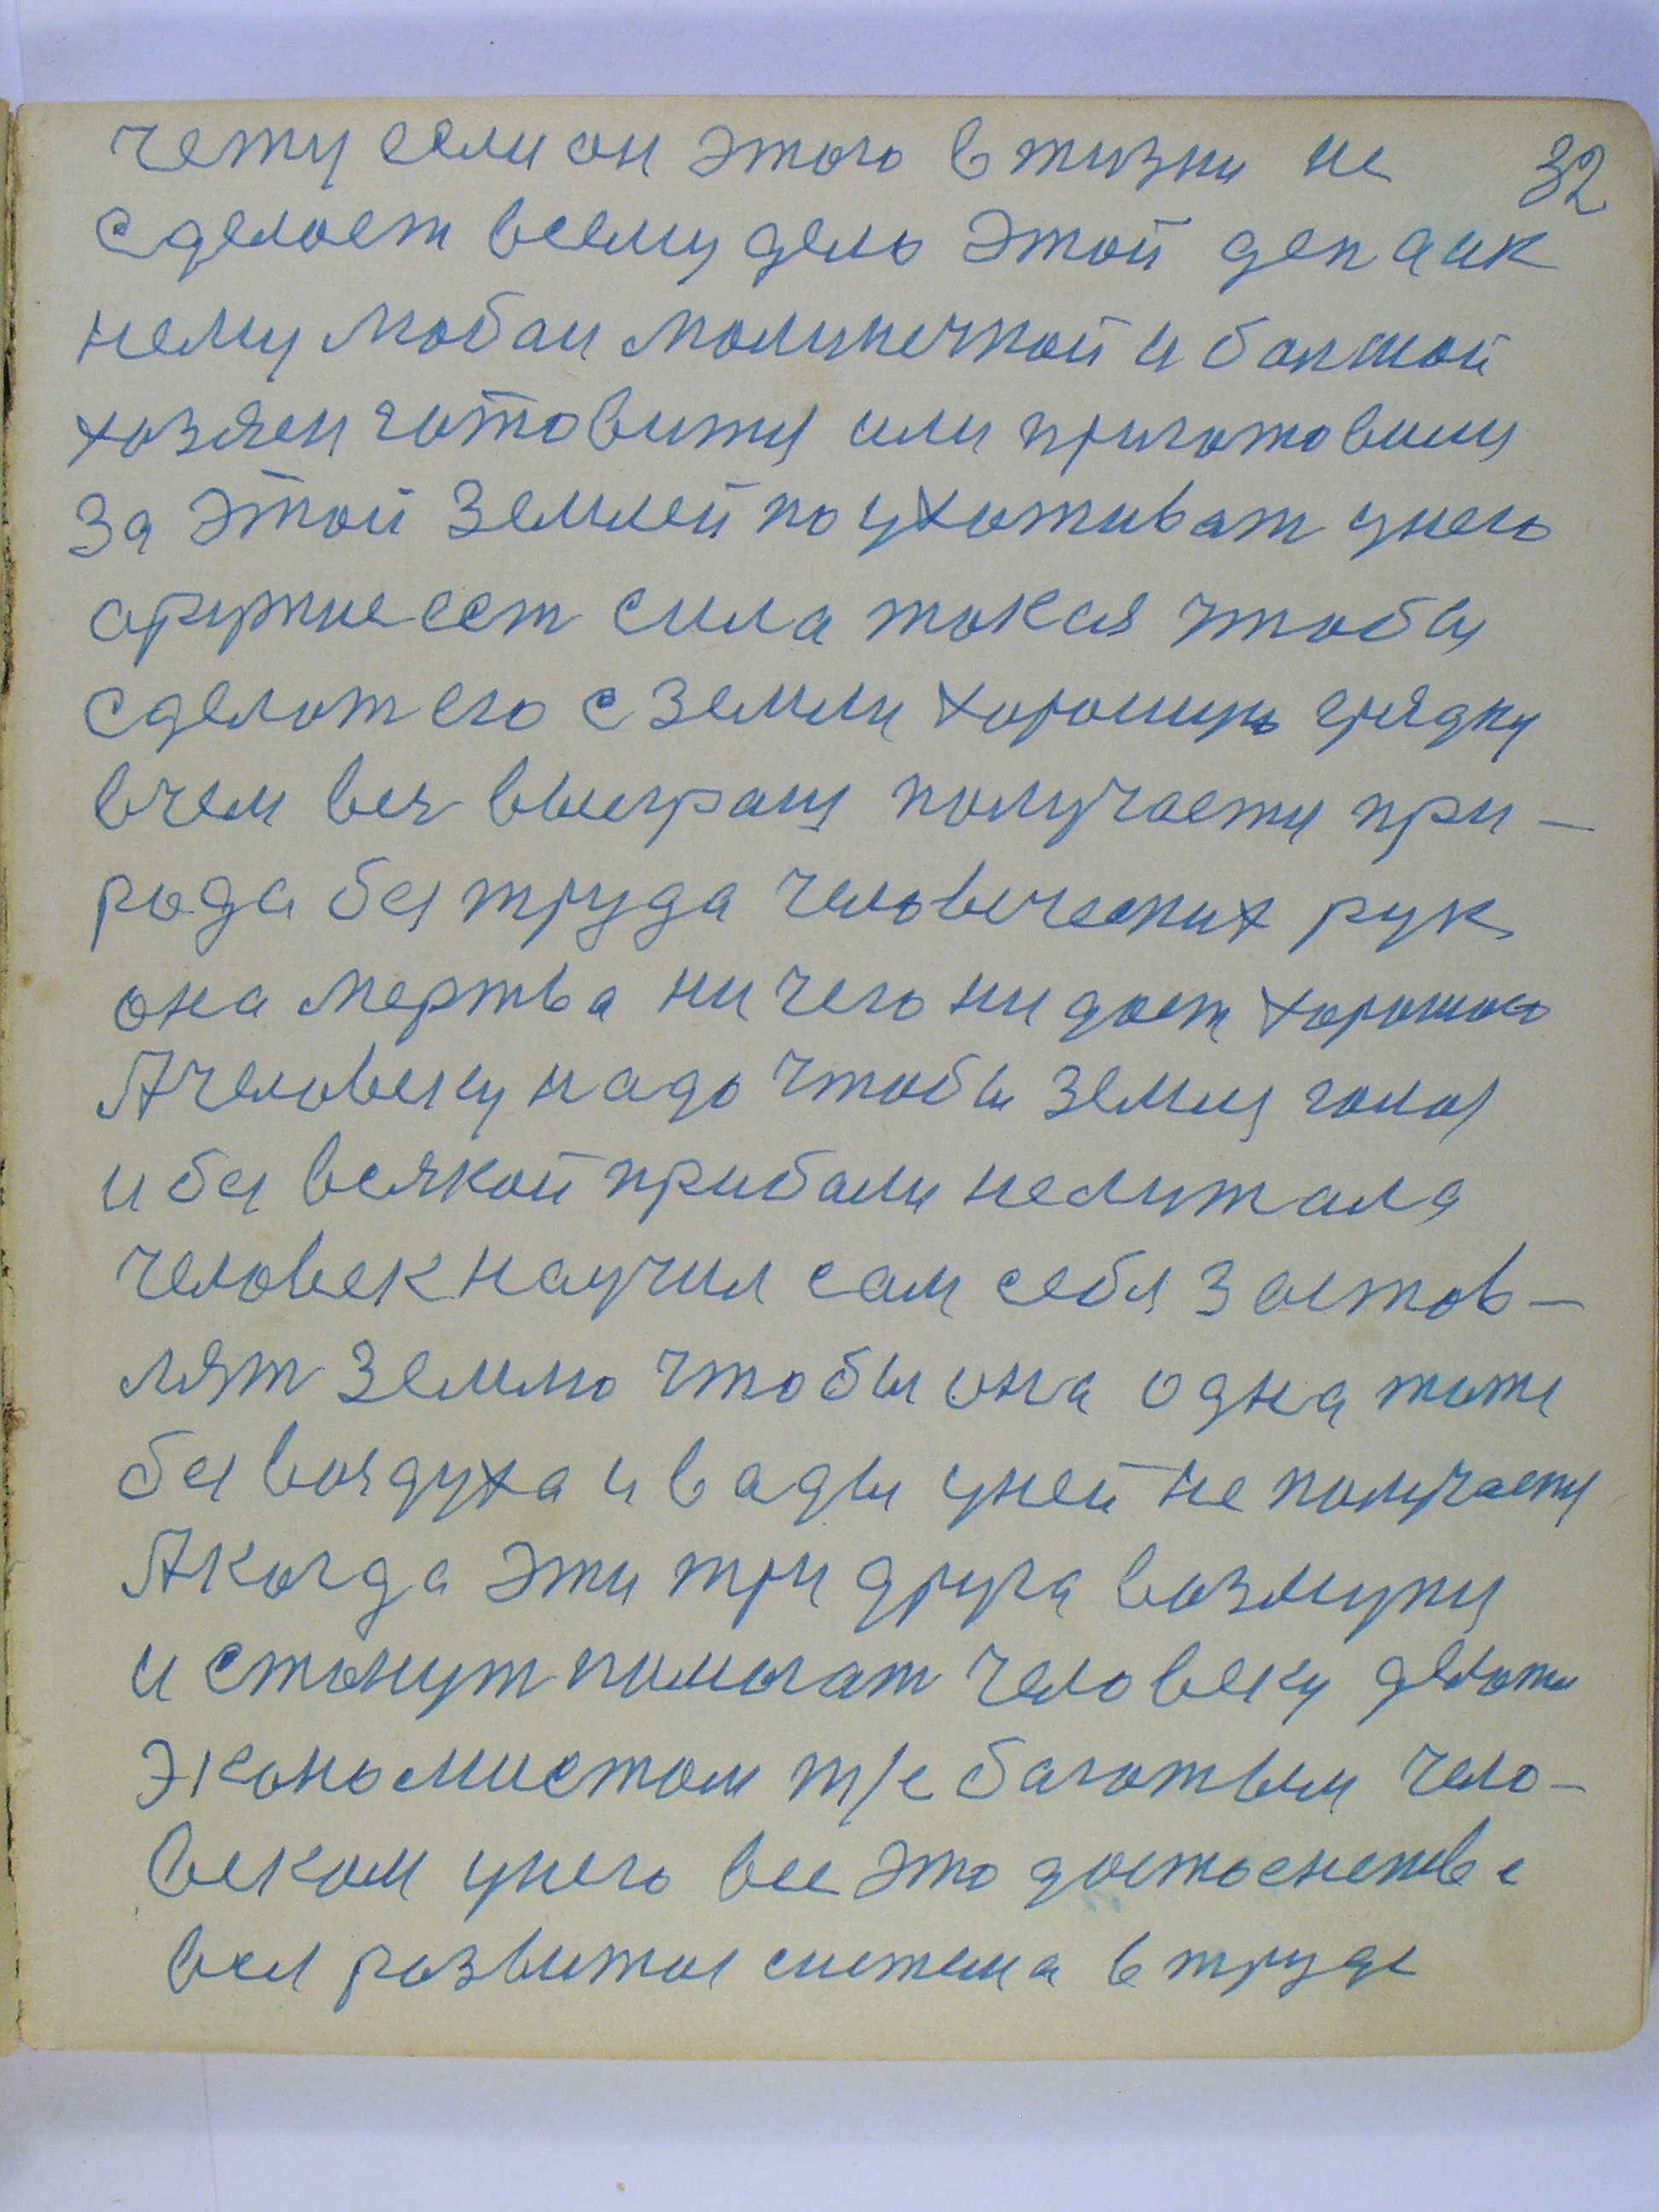 чему если он этого в жизни не 32
сделоет всему дело этой ден а ик
нему любаи малинечкой и балшой
хозяен готовитця или приготовилц
за этой землей по ухоживат унего
аружие ест сила токая чтобы
сделат его с земли хорошую грядку
вчем вся выиграш получаетц при-
рода без труда человеческих рук
она мертва ни чего ни дает хорошого
А человеку надо чтобы земля голоя
и без всякой прибали нелижала
человек научил сам себя застов-
лят землю чтобы она одна тоже
без воздуха и вады уней не получаетц
А когда эти три друга возмутц
и станут помогат человеку делати
экономистом т/е багатым чело-
веком унего все это достоенстве
вся розвитая система в труде